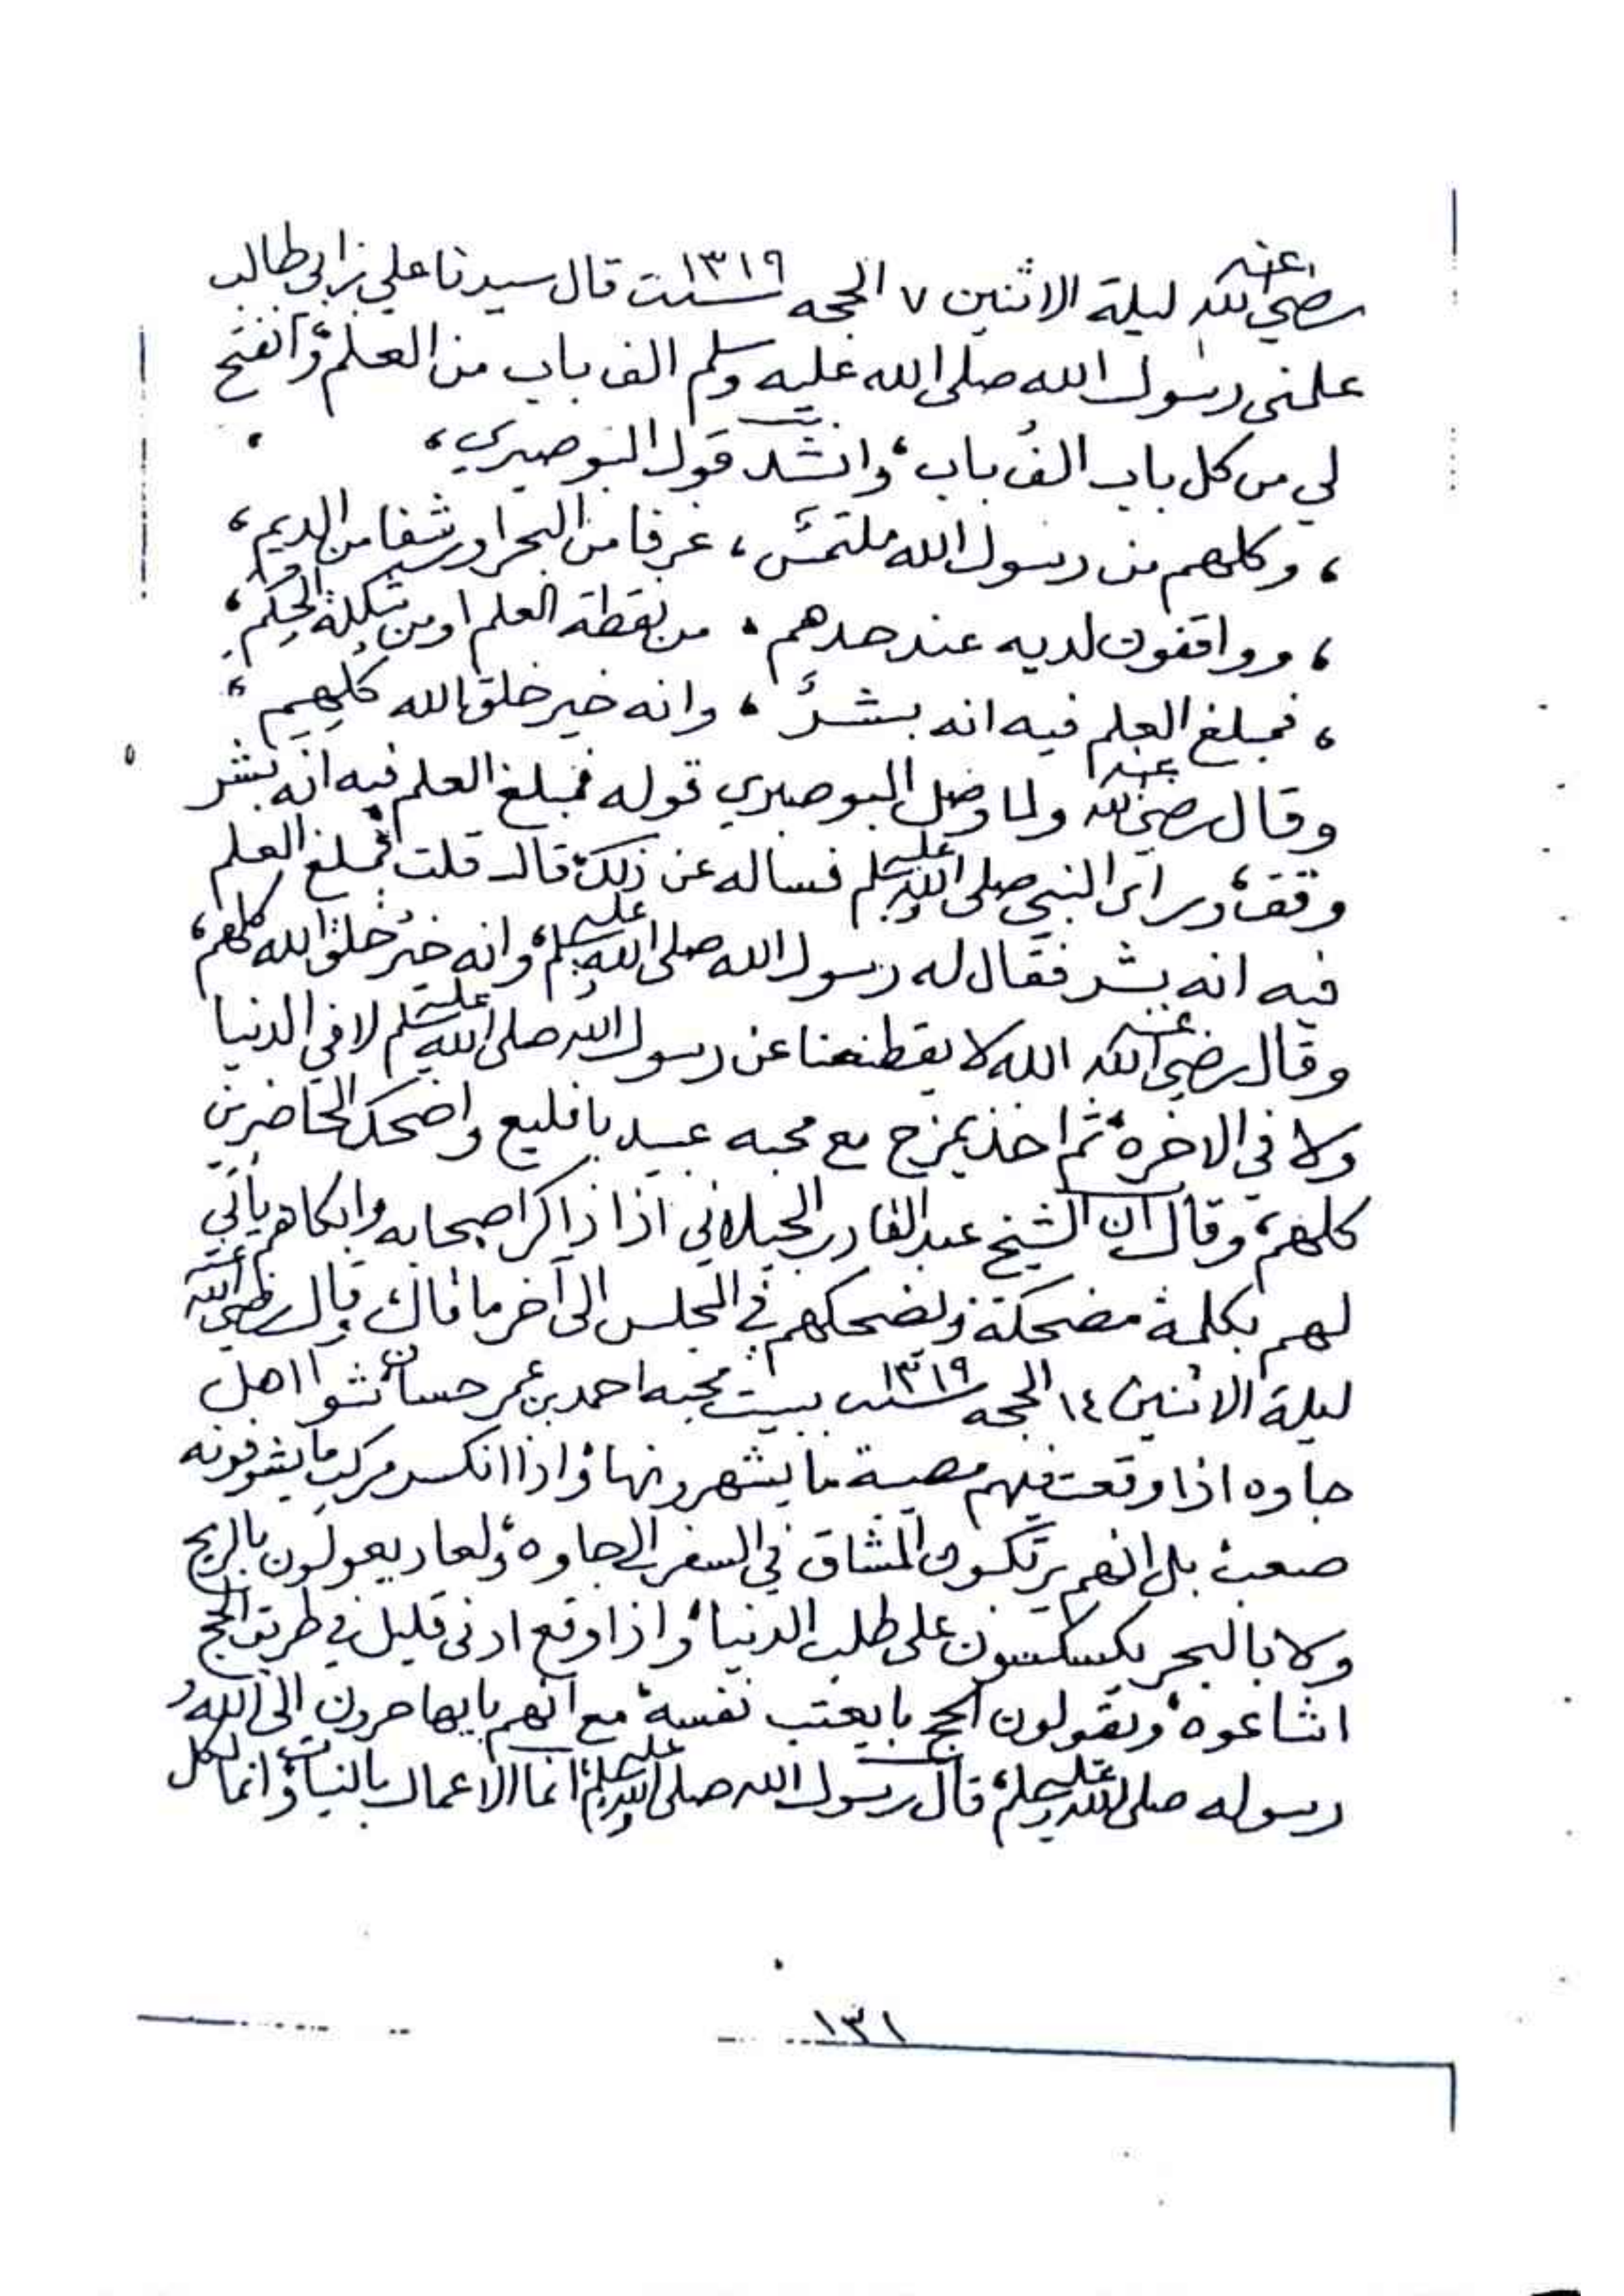 رضي الله عنه ليلة الاثنين ٧ الحجه سنت ١٣١٩ قال سيدنا علي بن ابي طالب
علمني رسول الله صلى الله عليه وسلم الف باب من العلم، وانفتح
لي من كل باب الف باب، وانشد قول البوصيري،
، وكلهم من رسول الله ملتمس ، غرفا من البحر او رشفا من الديم ،
، وواقفون لديه عند حدهم ، من نقطة العلم او من شكلة الحكم ،
، فمبلغ العلم فيه انه بشر ، وانه خير خلق الله كلهم ،
وقال رضي الله عنه ولما وصل البوصيري قوله فمبلغ العلم فيه انه بشر
وقف، وراى النبي صلى الله عليه وسلم فساله عن ذلك، قال قلت فمبلغ العلم
فيه انه بشر فقال له رسول الله صلى الله عليه وسلم، وانه خير خلق الله كلهم،
وقال رضي الله عنه الله لا يقطعنا عن رسول الله صلى الله عليه وسلم لا في الدنيا
ولا في الاخره، ثم اخذ يمزح مع محبه عبيد بافليع واضحك الحاضرين
كلهم، وقال ان الشيخ عبد القادر الجيلاني اذا ذاكر اصحابه وابكاهم ياتي
لهم بكلمة مضحكة ويضحكهم في المجلس الى آخر ما قال، قال رضي الله عنه
ليلة الاثنين ١٤ الحجه سنت ١٣١٩ ببيت محبه احمد بن عمر حسان شوا اهل
جاوه اذا وقعت فيهم مصيبة ما يشهرونها، واذا انكسر مركب ما يشوفونه
صعب، بل انهم يرتكبون المشاق في السفر الى جاوه، ولعاد يعولون بالريح
ولا بالبحر على طلب الدنيا، واذا وقع ادنى قليل في طريق الحج
اشاعوه، ويقولون الحج با يعتب نفسه، مع انهم با يهاجرون الى الله و
رسوله صلى الله عليه وسلم، قال رسول الله صلى الله عليه وسلم، انما الاعمال بالنيات، وانما لكل
١٣١